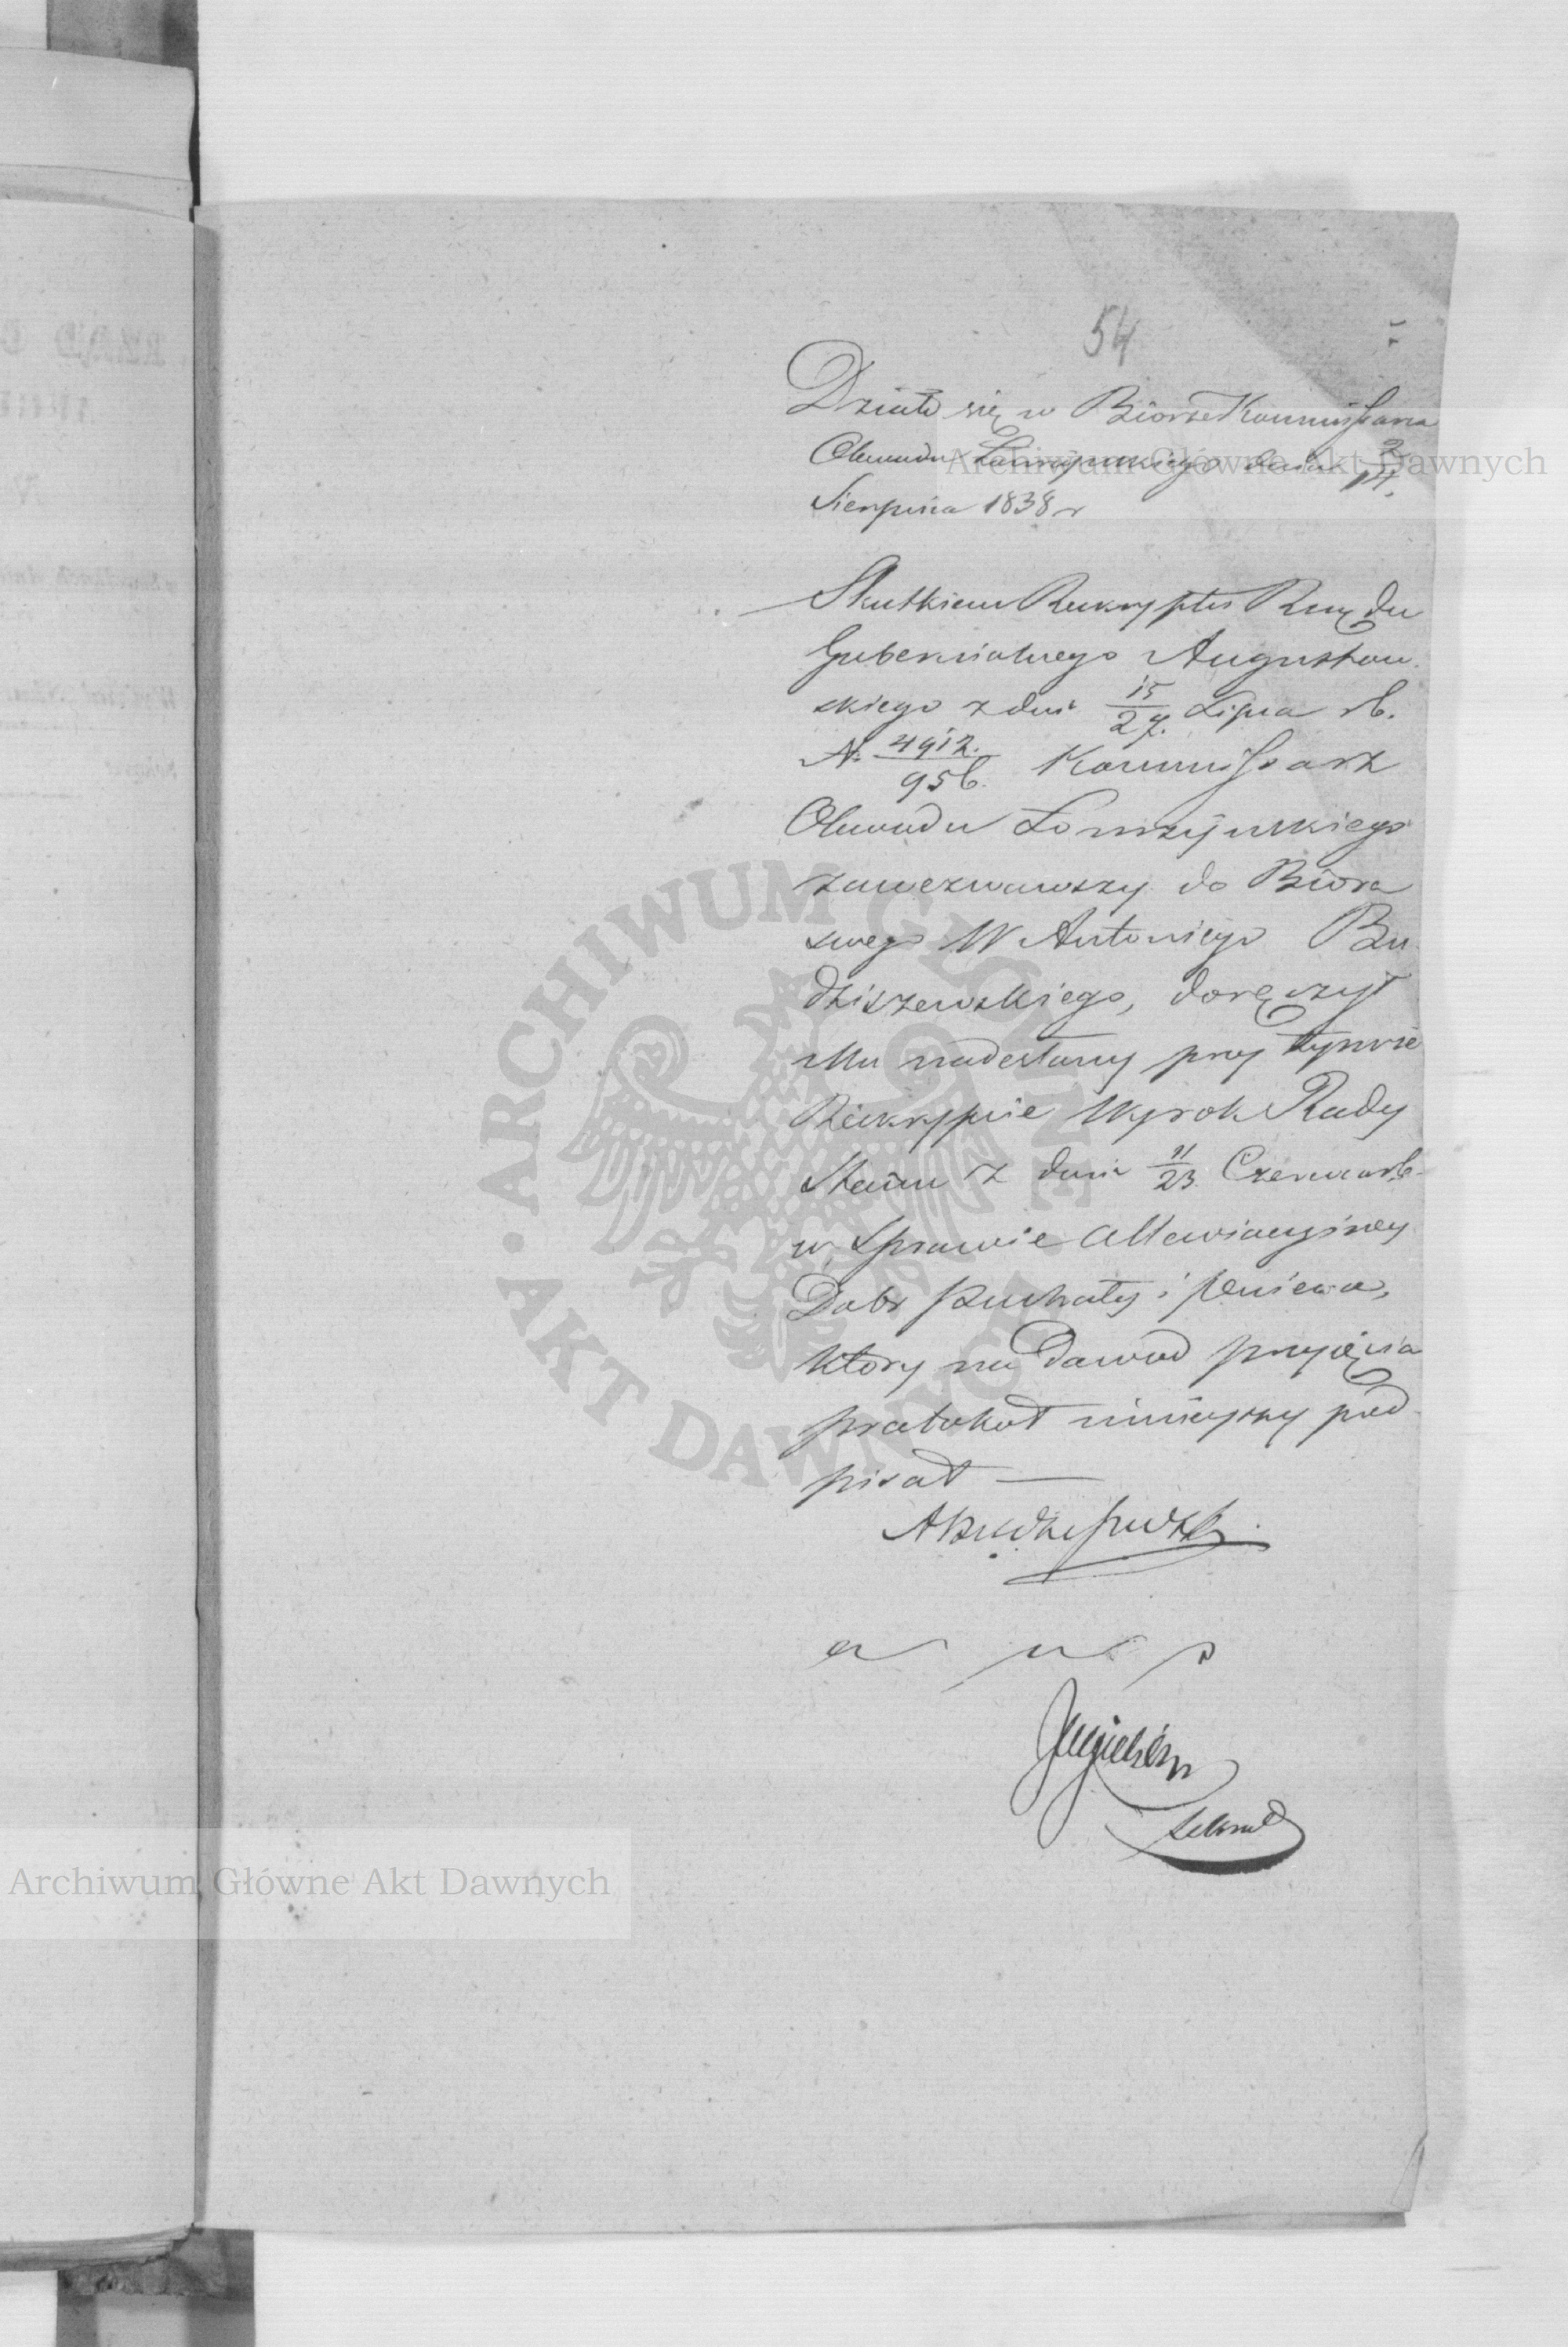 54
Działo się w Biorze Kommissarza
Obwodu Łomżyńskiego dnia 2/14.
Sierpnia 1838 r
Skutkiem Reskryptu Rządu
Gubernialnego Augustow
skiego z dnia 15/27. Lipca rb.
N. 4912./956. Kommissarz
Obwodu Łomżyńskiego
zawezwawszy do Biora
swego W Antoniego Bu
dziszewskiego, doręczył
Mu nadesłany przy tymże
Reskrypcie Wyrok Rady
Stanu z dnia 11/23. Czerwca rb.
w Sprawie Allewiacyjney
Dobr Puchały i Pniewa,
ktory na Dowod przyjęcia
protokoł ninieyszy pod
pisał —
ABudziszewski
Archiwum Główne Akt Dawnych
Archiwum Główne Akt Dawnych
ARCHIWUM GŁÓWNE · AKT DAWNYCH ·